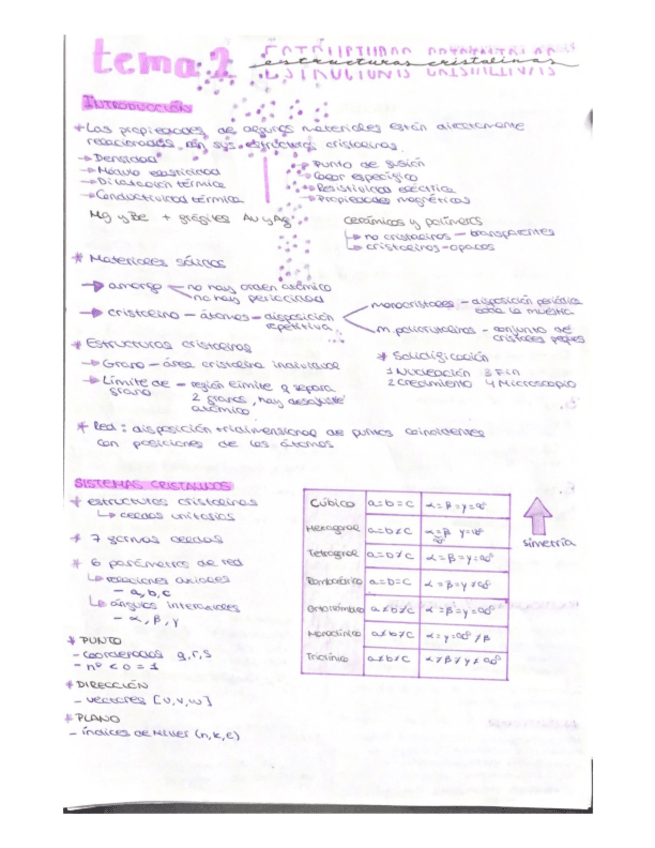 tema 2 estructuras cristalinas
INTRODUCCIÓN
+ Las propiedades de algunos materiales están directamente
relacionadas con sus estructuras cristalinas
→ Densidad
→ Módulo elasticidad
→ Dilatación térmica
→ Conductividad térmica
→ Punto de fusión
→ Calor específico
→ Resistividad eléctrica
→ Propiedades magnéticas
Mg y Be + frágiles Au y Ag
cerámicos y polímeros
↳ no cristalinos - transparentes
↳ cristalinos - opacos
* Materiales sólidos
→ amorfo - no hay orden atómico
no hay periodicidad
→ cristalino - átomos - disposición
repetitiva
monocristales - disposición periódica
toda la muestra
m. policristalinos - conjunto de
cristales peques
* Estructuras cristalinas
→ Grano - área cristalina individual
→ Límite de grano - región límite q separa
2 granos, hay desajuste
atómico
* Solidificación
1 Nucleación 3 Fin
2 Crecimiento 4 Microscopio
* Red: disposición tridimensional de puntos coincidentes
con posiciones de los átomos
SISTEMAS CRISTALINOS
+ estructuras cristalinas
↳ celdas unitarias
* 7 formas celdas
* 6 parámetros de red
↳ relaciones axiales
- a, b, c
↳ ángulos interaxiales
- α, β, γ
* PUNTO
- coordenadas q, r, s
- nº < o = 1
* DIRECCIÓN
- vectores [u, v, w]
* PLANO
- índices de Miller (h, k, l)
Cúbico a=b=c α=β=γ=90º
Hexagonal a=b≠c α=β
Tetragonal a=b≠c α=β=γ=90º
Romboédrico a=b=c α=β=γ≠90º
Ortorrómbico a≠b≠c α=β=γ=90º
Monoclínico a≠b≠c α=γ=90º≠β
Triclínico a≠b≠c α≠β≠γ≠90º
simetría